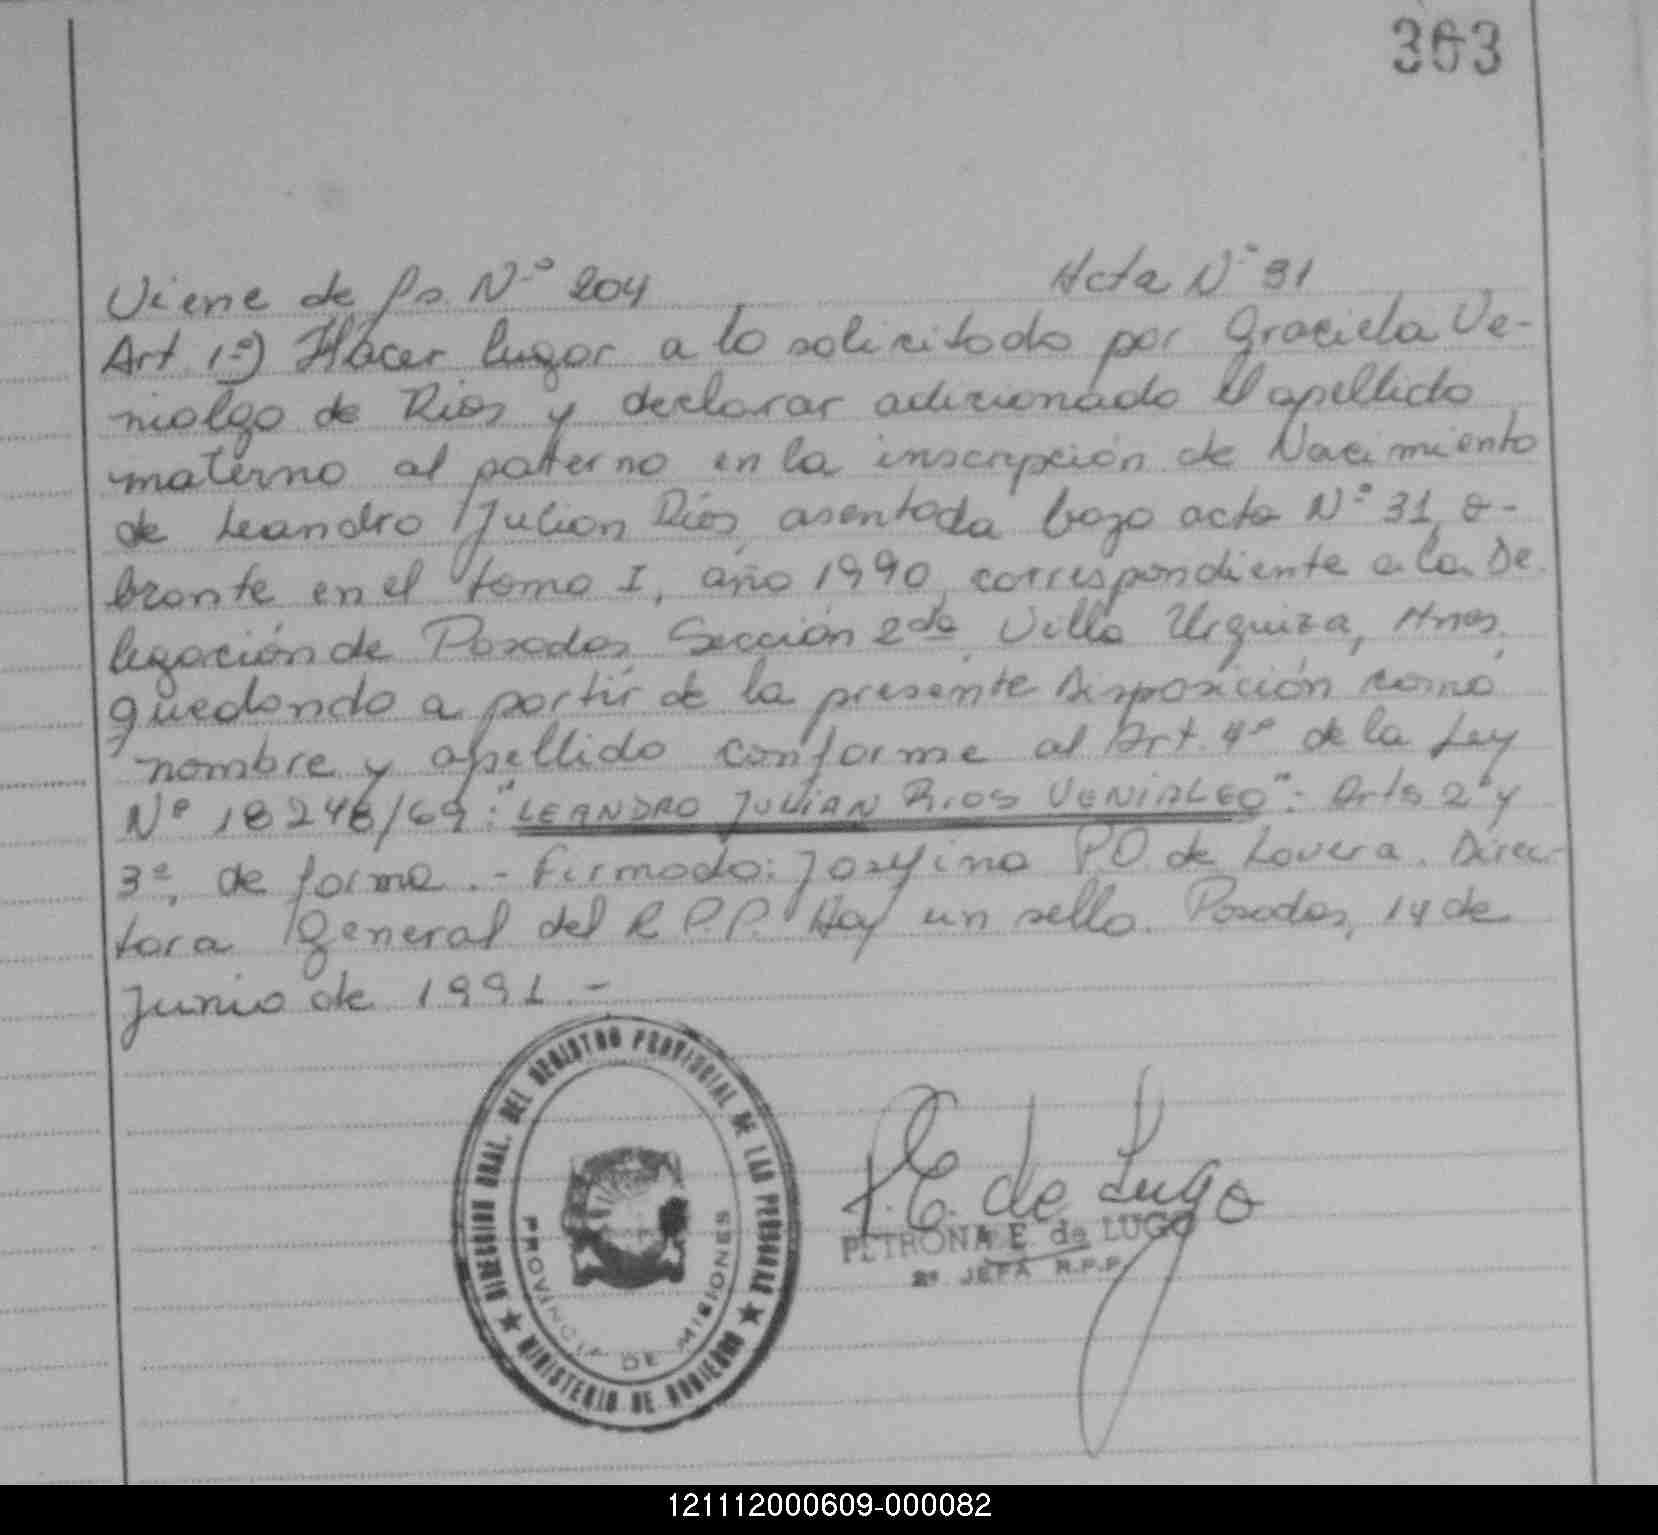 363
Viene de fs. Nº 204 Acta Nº 31
Art. 1º) Hacer lugar a lo solicitado por Graciela Ve-
nialgo de Rios y declarar adicionado el apellido
materno al paterno en la inscripción de Nacimiento
de Leandro Julian Rios, asentada bajo acta Nº 31, o-
brante en el tomo I, año 1990, correspondiente a la De-
legación de Posadas Sección 2da Villa Urquiza, Mnes.
quedando a partir de la presente Disposición como
nombre y apellido conforme al Art. 4º de la Ley
Nº 18248/69: "LEANDRO JULIAN RIOS VENIALGO": Arts 2º y
3º, de forma. - Firmado: Josefina P.O. de Lovera. Direc-
tora General del R.P.P. Hay un sello. Posadas, 14 de
Junio de 1991. -
DIRECCION GRAL. DEL REGISTRO PROVINCIAL DE LAS PERSONAS
MINISTERIO DE GOBIERNO
PROVINCIA DE MISIONES
P.E. de Lugo
PETRONA E. de LUGO
2º JEFA R.P.P.
121112000609-000082